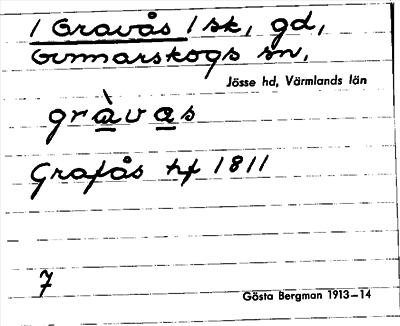 1 Gravås 1 sk, gd,
Gunnarskogs sn.
Jösse hd, Värmlands län
gràvas
Grafås hf 1811
7
Gösta Bergman 1913–14